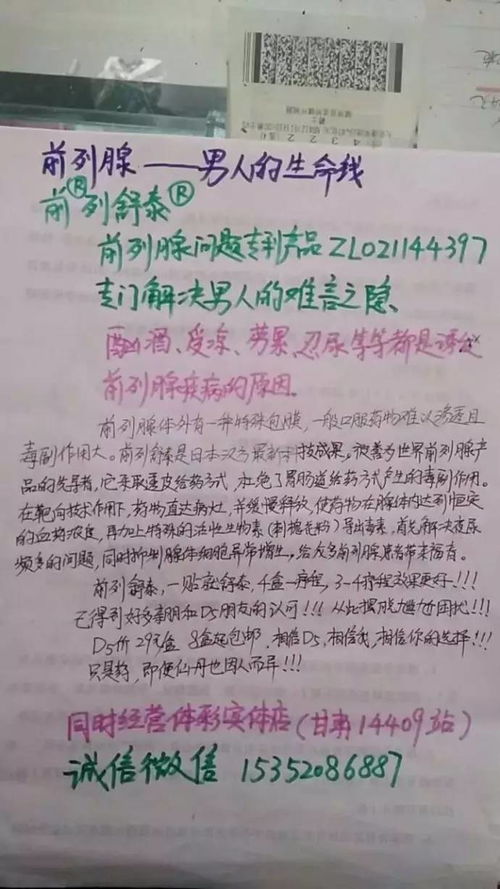 前列腺——男人的生命线
前®列舒泰®
前列腺问题专利产品ZL021144397
专门解决男人的难言之隐
酗酒、受凉、劳累、忍尿等等都是诱发
前列腺疾病的原因.
前列腺体外有一种特殊包膜，一般口服药物难以渗透且
毒副作用大。前列舒泰是日本汉方最新科技成果，被誉为世界前列腺产
品的先导者，它采取透皮给药方式，杜绝了胃肠道给药方式产生的毒副作用。
在靶向技术作用下，药物直达病灶，并缓慢释放，使药物在腺体内达到恒定
的血药浓度，再加上特殊的活性生物素导出毒素，首先解决夜尿
频多的问题，同时抑制腺体细胞异常增生，给众多前列腺患者带来福音。
前列舒泰，一贴就舒泰，4盒一疗程，3-4疗程效果更好!!!
已得到好多亲朋和D5朋友的认可!!! 从此摆脱尴尬困扰!!!
D5价 29元/盒 8盒起包邮，相信D5，相信我，相信你的选择!!!
只是药，即便仙丹也因人而异!!!
同时经营体彩实体店(甘肃14409站)
诚信微信 15352086887